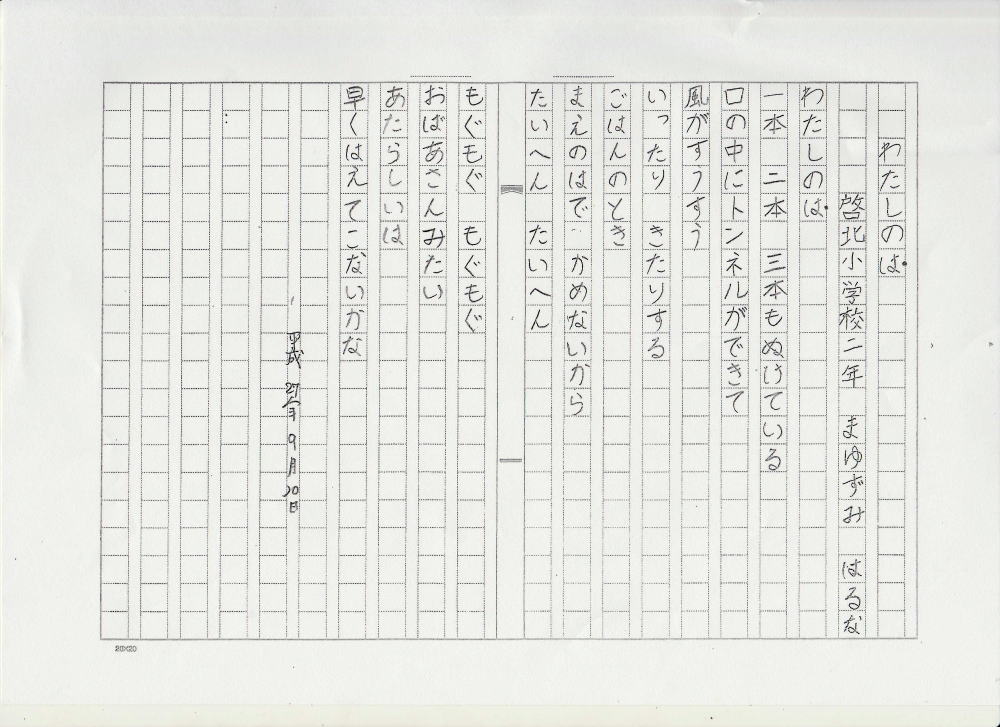 わたしのは
啓北小学校二年 まゆずみ はるな
わたしのは
一本 二本 三本もぬけている
口の中にトンネルができて
風がすうすう
いったり きたりする
ごはんのとき
まえのはで かめないから
たいへん たいへん
もぐもぐ もぐもぐ
おばあさんみたい
あたらしいは
早くはえてこないかな
平成 27年 9月 20日
20×20